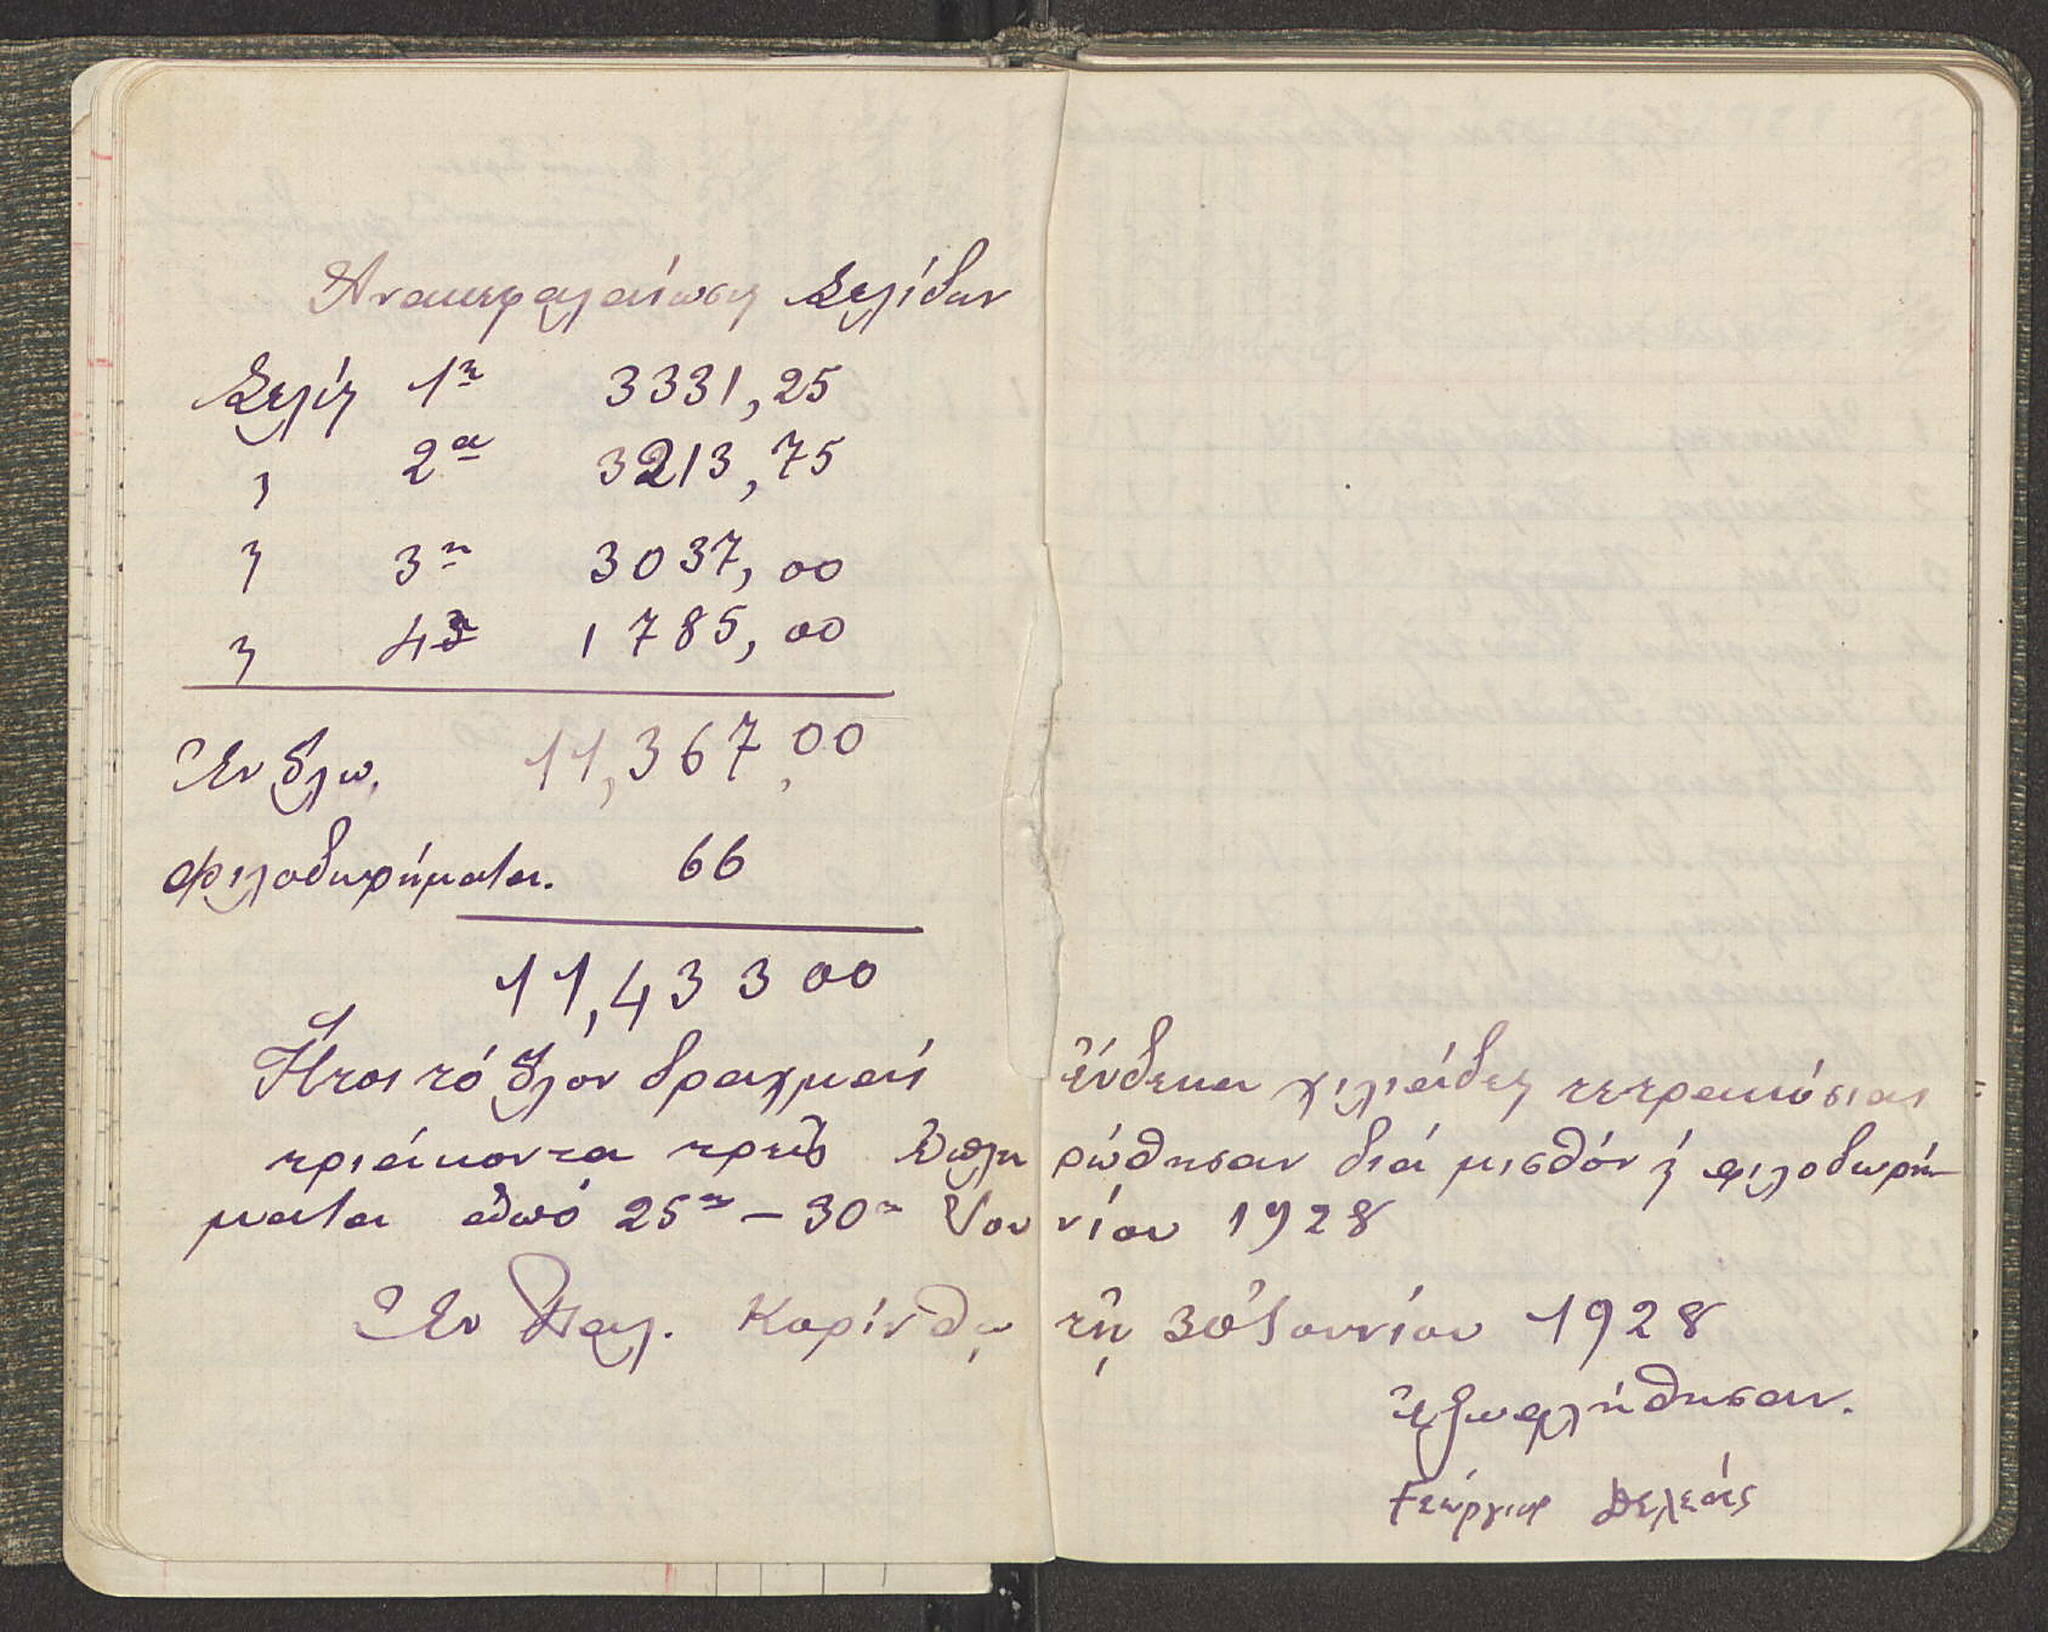 Ἀνακεφαλαίωσις Σελίδων
Σελίς 1η 3331,25
„ 2α 3213,75
„ 3η 3037,00
„ 4η 1785,00
Ἐν ὅλῳ. 11,367,00
Φιλοδωρήματα. 66
11,433 00
Ἤτοι τό ὅλον δραχμαί ἕνδεκα χιλιάδες τετρακόσιαι
τριάκοντα τρεῖς ἐπληρώθησαν διά μισθόν ᾗ φιλοδωρή-
ματα ἀπό 25ης – 30ης Ἰουνίου 1928
Ἐν Παλ. Κορίνθῳ τῇ 30 Ἰουνίου 1928
Ἐξωφλήθησαν.
Γεώργιος